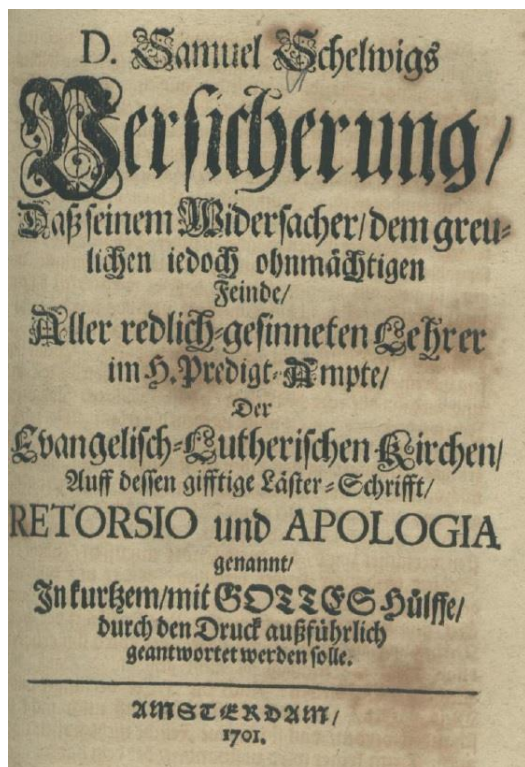 D. Samuel Schelwigs
Versicherung/
Daß seinem Widersacher/dem greu-
lichen iedoch ohnmächtigen
Feinde/
Aller redlich-gesinneten Lehrer
im H. Predigt-Ampte/
Der
Evangelisch-Lutherischen Kirchen/
Auff dessen gifftige Läster-Schrifft/
RETORSIO und APOLOGIA
genannt/
In kurtzem/mit GOTTES Hülffe/
durch den Druck außführlich
geantwortet werden solle.
AMSTERDAM/
1701.